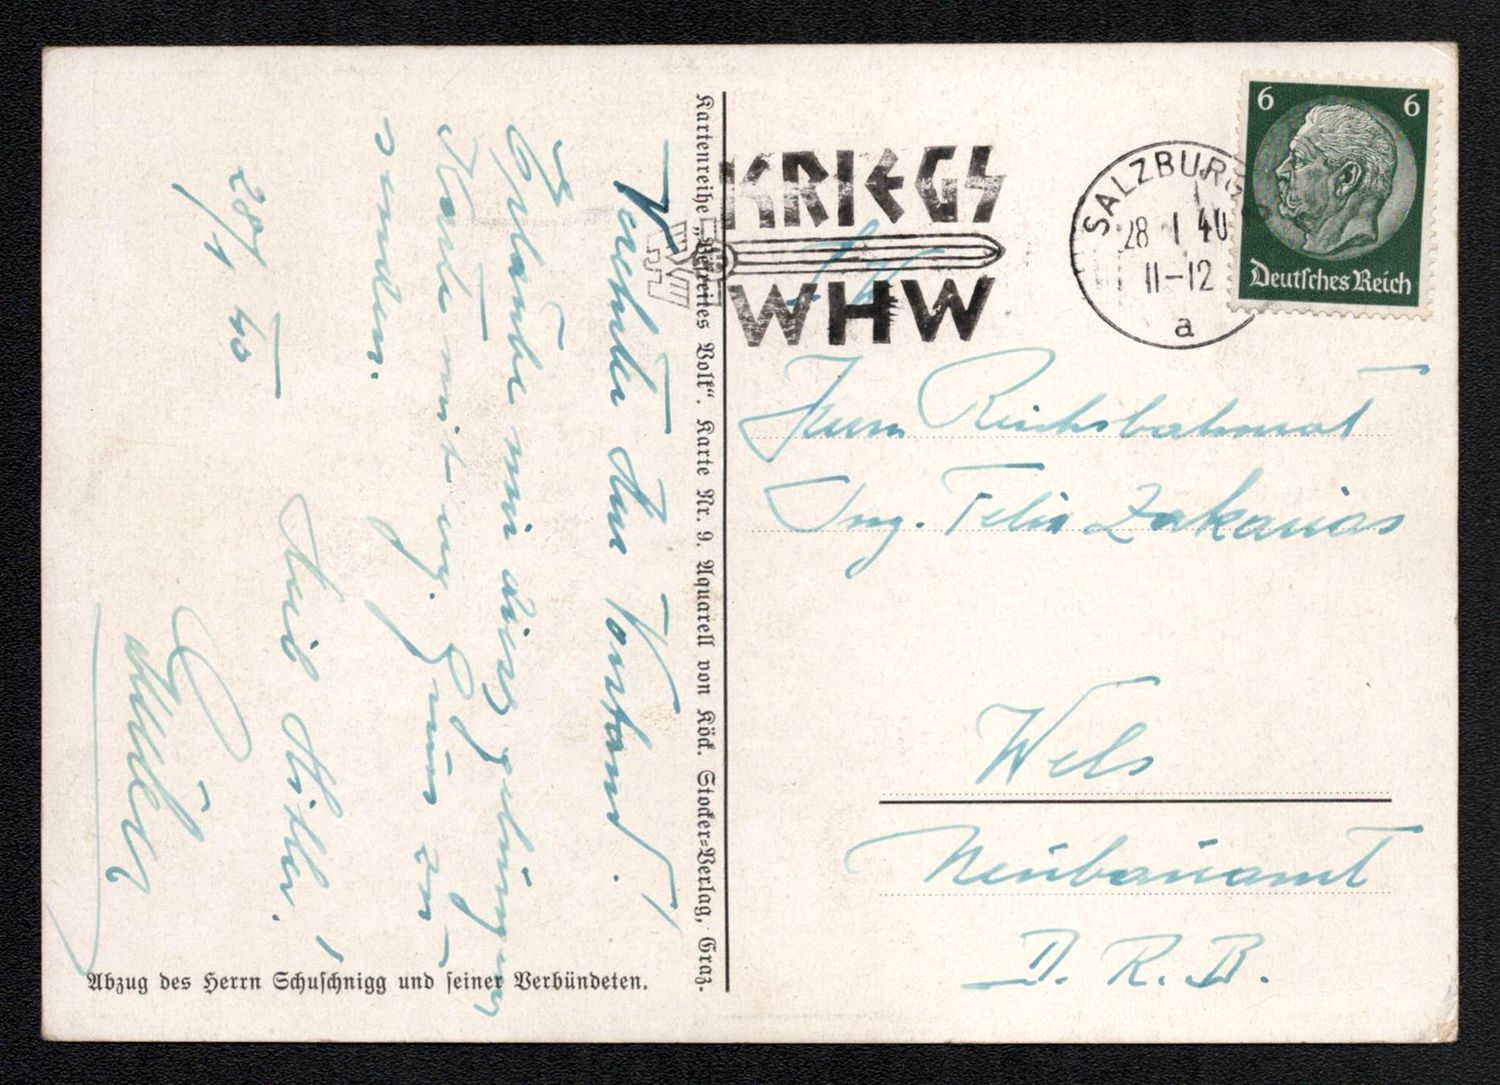 Verehrter Herr Vorstand!
Erlaube mir diese gelungene
Karte mit erg. Gruß zu
senden.
Heil Hitler!
28/1 40
Kartenreihe „Befreites Volk“. Karte Nr. 9. Aquarell von Köck. Stocker=Verlag, Graz.
Abzug des Herrn Schuschnigg und seiner Verbündeten.
KRIEGS
WHW
SALZBURG
28 1 40
11-12
a
6 6
Deutsches Reich
Herrn Reichsbahnrat
Ing. Felix Zakarias
Wels
Neubauamt
D. R. B.